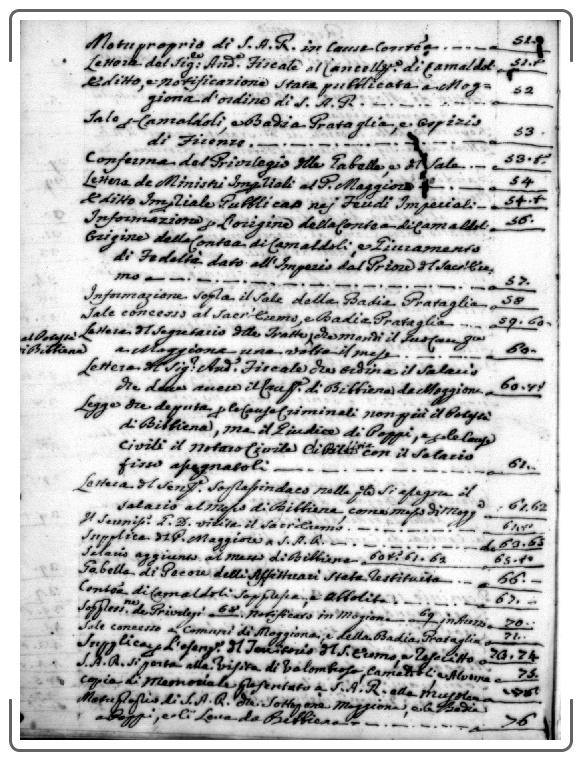 Motuproprio di S. A. R. in Cause Contéa 51.
Lettera del Sigr. Audr. Fiscale al Cancellre. di Camaldoli 51.t
Editto, e notificazione stata pubblicata a Mog=
giona d'ordine di S. A. R. 52
Sale p Camaldoli, e Badia Prataglia, e Ospizio
di Firenze 53.
Conferma del Privilegio delle Tabelle, e del Sale 53.t
Lettera de Ministri Impliali al P. Maggiore 54
Editto Impliale Pubblicato nei Feudi Imperiali 54.t
Informazione p l'origine della Contea di Camaldoli 56.
Origine della Contea di Camaldoli, e Giuramento
di Fedeltà dato all'Imperio dal Priore del Sacr'Ere=
mo 57.
Informazione sopra il Sale della Badia Prataglia 58
Sale concesso al Sacr'Eremo, e Badia Prataglia 59.60.
Lettera del Segretario delle Tratte, che mandi il
al Potestà
di Bibbiena
a Moggiona una volta il mese 60.
Lettera del Sigr. Audr. Fiscale che ordina il Salario
che deve avere il di Bibbiena da Moggiona 60.t
Legge che deputa p le Cause Criminali non più il Potestà
di Bibbiena, ma il Giudice di Poppi, e p le Cause
Civili il notaro Civile di Bibbiena con il Salario
fisso assegnatoli 61.
Lettera del Soprasindaco nella qle si assegna il
salario al messo di Bibbiena come messo di Mogga. 61.62
Il Sereniss. G. D. visita il Sacr'Eremo
Supplica del P. Maggiore a S. A. R. 63.65
Salario aggiunto al messo di Bibbiena 60.t 61.62 65.t
Tabella di Pecore delli Affittuari stata restituita 66
Contéa di Camaldoli Soppressa, e Abolita 67.
Soppressne. de Privilegi 68 Notificato in Mogiona 69 70.
Sale concesso a Comuni di Moggiona, e della Badia Prataglia 71.
Supplica p l'esenz. del Territorio del S. Eremo, e Rescritto 73.74
S. A. R. si porta alla Visita di Valombrosa, Camaldoli e Alvernia 75.
Copia di Memoriale presentato a S. A. R. alla
Motuproprio di S. A. R. che Sottopone Moggiona, e la Badia
a Poppi, e li Leva da Bibbiena 76